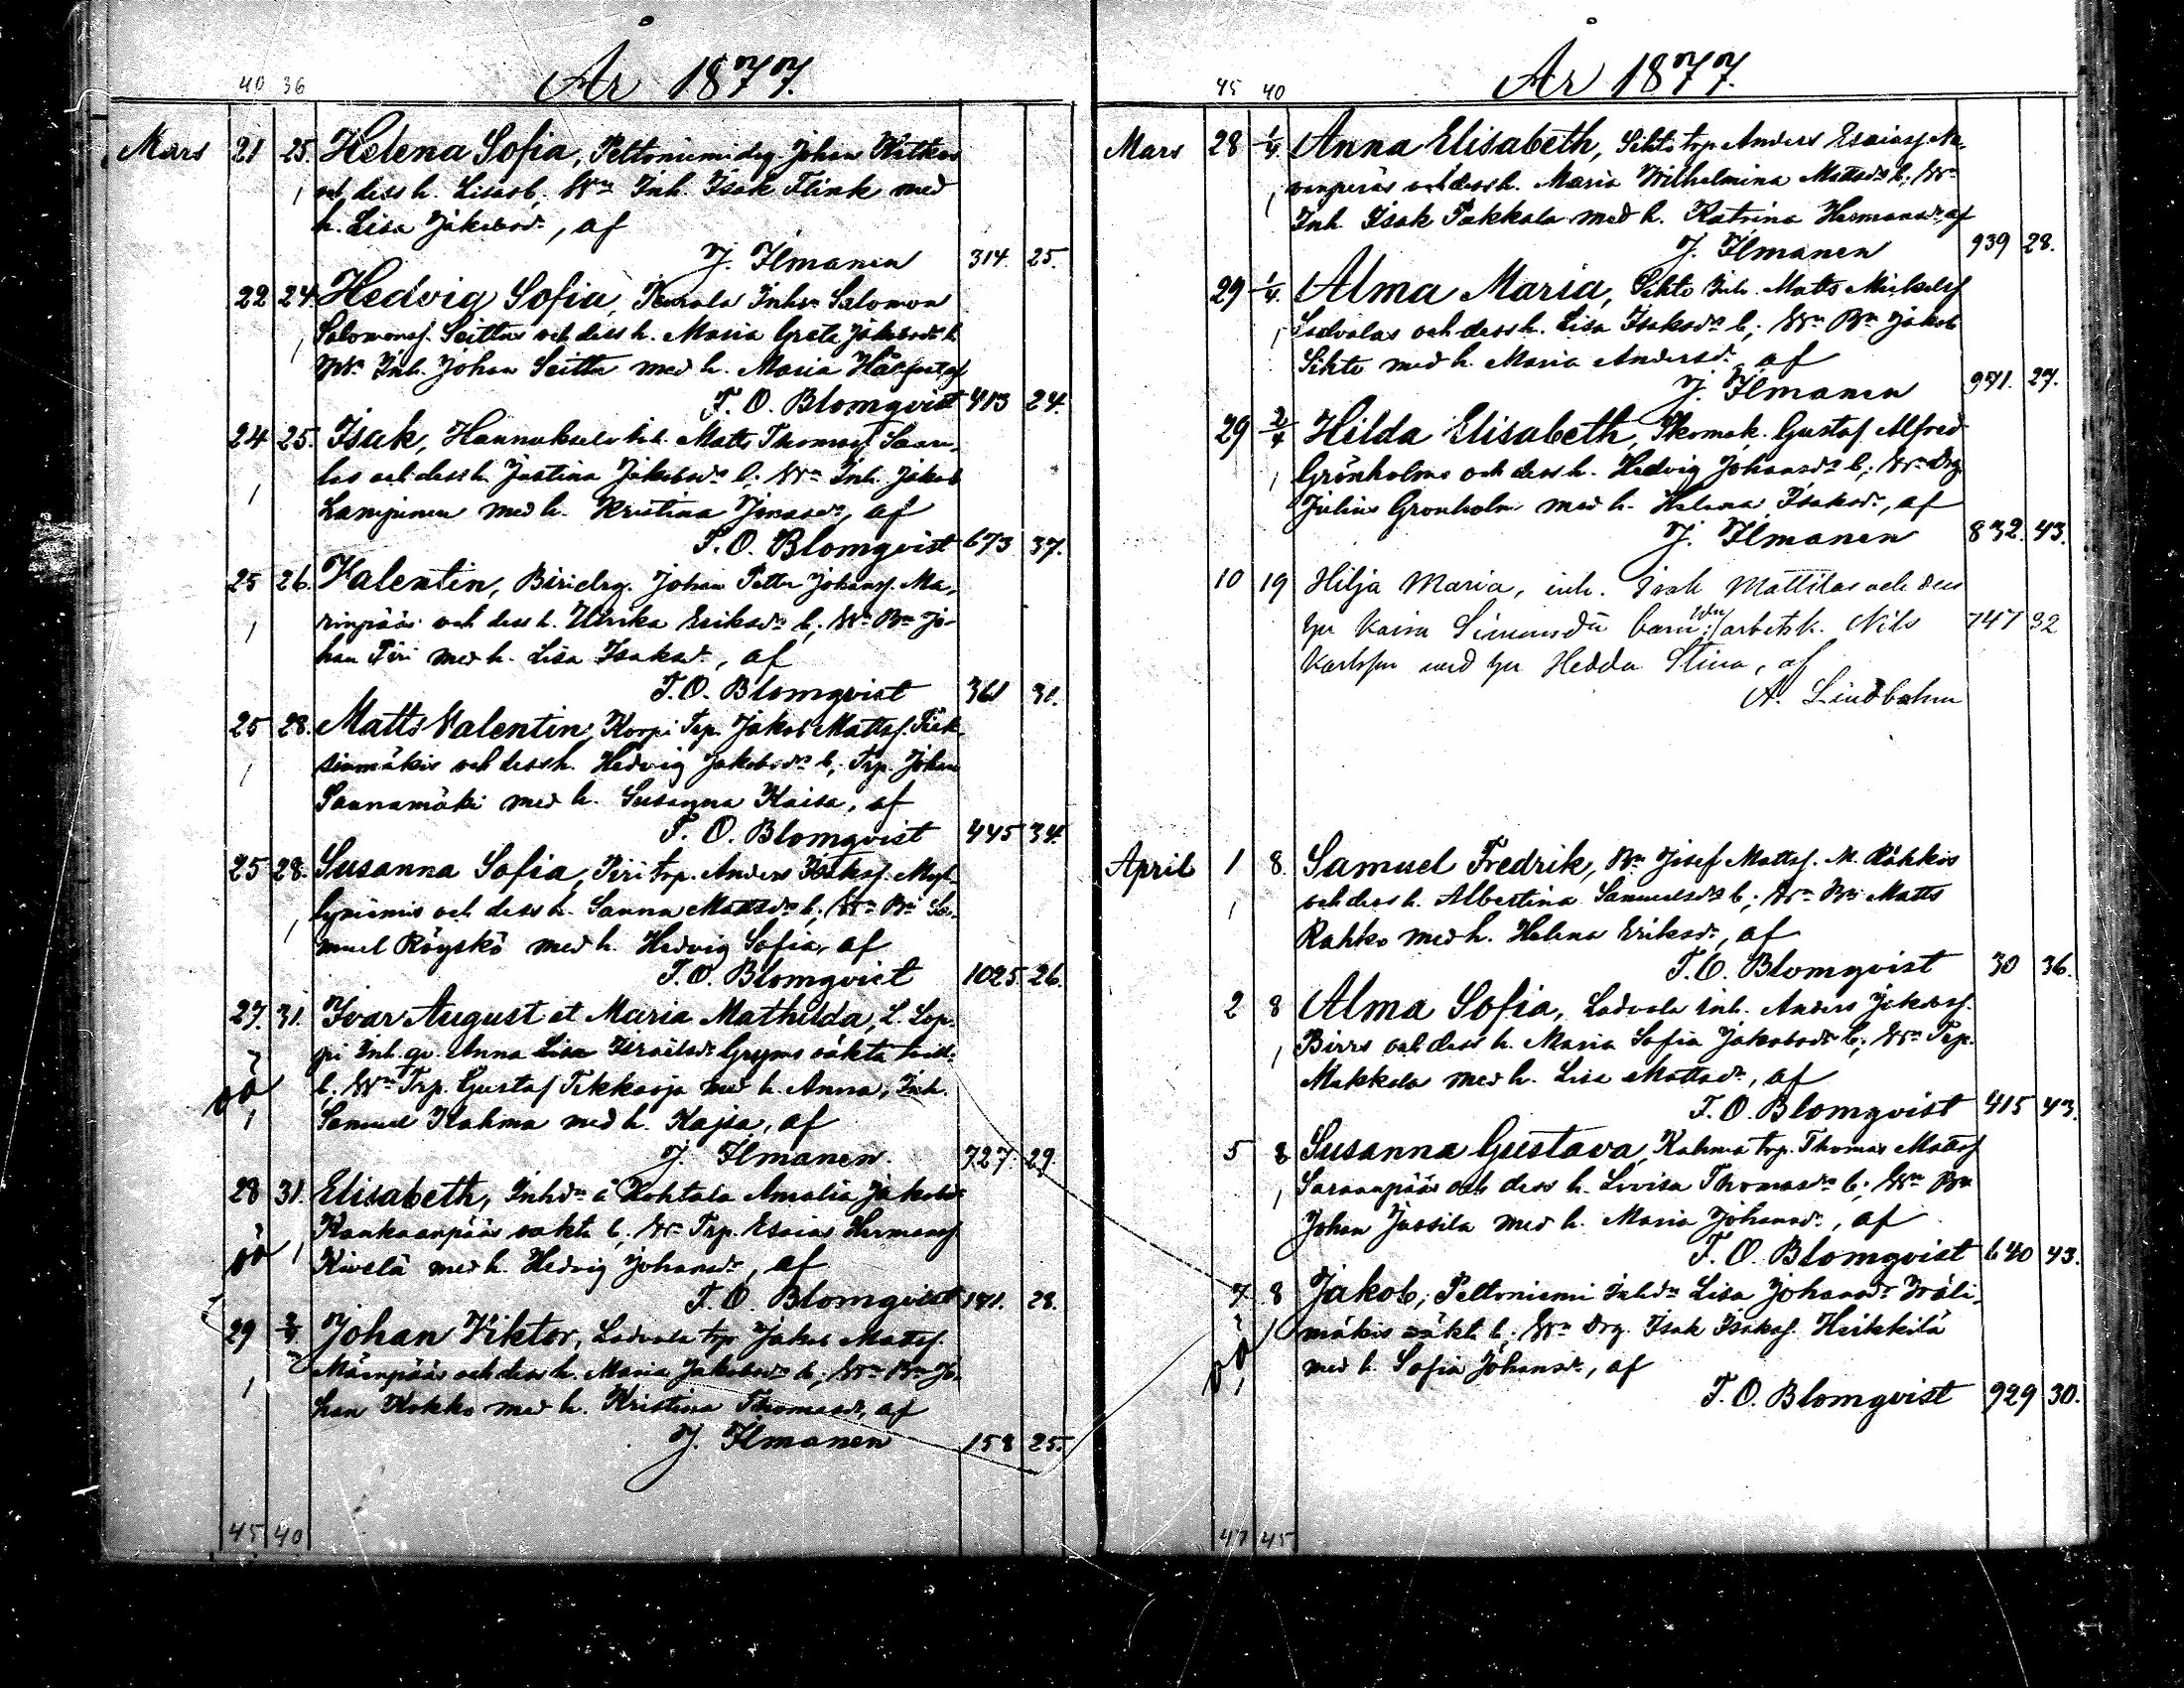 År 1877.
40 36
Mars 21 25. Helena Sofia, Peltoniemi drg. Johan Kitkas
och dess h. Lisas b, Wn Inh. Isak Flink med
h. Lisa Jakobsdr, af
J. Ilmanen 314. 25.
22 24. Hedvig Sofia, Inhn Salomon
Salomonsf. Seittus och dess h. Maria Greta Jakobsdrs b.
Wn Inh. Johan Seittu med h. Maria af
T. O. Blomqvist 413 24.
24 25. Isak, Hannuksela Inh. Matts Thomasf. Saari,
las och dess h. Justina Jakobsdrs b; Wn Inh. Jakob
Lampinen med h. Kristina Jonasdr, af
T. O. Blomqvist 673 37.
25 26. Valentin, Piri drg. Johan Petter Johansf. Ma,
rinpääs och dess h. Ulrika Eriksdrs b; Wn Bn Jo-
han Piri med h. Lisa Isaksdr, af
T. O. Blomqvist 361 31.
25 28. Matts Valentin, Korpi Trp. Jakob Mattsf.
sinmäkis och dess h. Hedvig Jakobsdrs b; Trp. Johan
Saunamäki med h. Susanna Kaisa, af
T. O. Blomqvist 445 34.
25 28. Susanna Sofia, Piri trp. Anders Isaksf. Myl,
lyniemis och dess h. Sanna Mattsdrs b; Wn Bn Sa,
muel Röyskö med h. Hedvig Sofia, af
T. O. Blomqvist 1025. 26.
27. 31. Ivar August et Maria Mathilda, L. Lop,
pi Inh. qv. Anna Lisa Israelsdr Gryms oäkta tvill.
b; Wn Trp. Gustaf Tikkaoja med h. Anna, Inh.
oä Samuel Kahma med h. Kajsa, af
J. Ilmanen. 727. 29.
28 31. Elisabeth, Inhdn å Kohtala Amalia Jakobsdr
Kankaanpääs oäkta b; Wn Trp. Esaias Hermansf.
oä Kivelä med h. Hedvig Johansdr, af
T. O. Blomqvist 181. 28.
29 2/4 Johan Viktor, Ladvala trp. Jakob Mattsf.
Mäenpääs och dess h. Maria Jakobsdrs b; Wn Bn Jo,
han Kokko med h. Kristina Thomasdr, af
J. Ilmanen 158 25.
45 40
År 1877.
45 40
Mars 28 1/4 Anna Elisabeth, Sikto trp. Anders Esaiasf. Na,
vanperäs och dess h. Maria Wilhelmina Mattsdrs b; Wn
Inh. Isak Pakkala med h. Katrina Hermansdr af
J. Ilmanen 939 28.
29 1/4 Alma Maria, Sikto Inh. Matts Mickelsf
Ladvalas och dess h. Lisa Isaksdrs b; Wn Bn Jakob
Sikto med h. Maria Andersdr, af
J. Ilmanen 971. 27.
29 2/4 Hilda Elisabeth, Skomak. Gustaf Alfred
Grönholms och dess h. Hedvig Johansdrs b; Wn Drg.
Julius Gronholm med h. Helena Isaksdr, af
J. Ilmanen 832. 43.
10 19 Hilja Maria, inh. Isak Mattilas och dess
hu Kaisa Simonsdrs barn; arbetsk. Nils 747 32
Karlsson med hu Hedda Stina, af
A. Lindbohm
April 1 8. Samuel Fredrik, Bn Josef Mattsf. M. Rahkos
och dess h. Albertina Samuelsdrs b; Wn Bn Matts
Rahko med h. Helena Eriksdr, af
T. O. Blomqvist 30 36.
2 8 Alma Sofia, Ladvala Inh. Anders Jakobsf.
Birrs och dess h. Maria Sofia Jakobsdrs b; Wn Trp.
Makkala med h. Lisa Mattsdr, af
T. O. Blomqvist 415 43.
5 8 Susanna Gustava, Kahma trp. Thomas Mattsf
Saraanpääs och dess h. Lovisa Thomasdrs b; Wn Bn
Johan Jussila med h. Maria Johansdr, af
T. O. Blomqvist 640 43.
7 8 Jakob, Peltoniemi Inhdn Lisa Johansdr
mäkis oäkta b; Wn Drg. Isak Isaksf. Heikkilä
oä med h. Sofia Johansdr, af
T. O. Blomqvist 929 30.
47 45